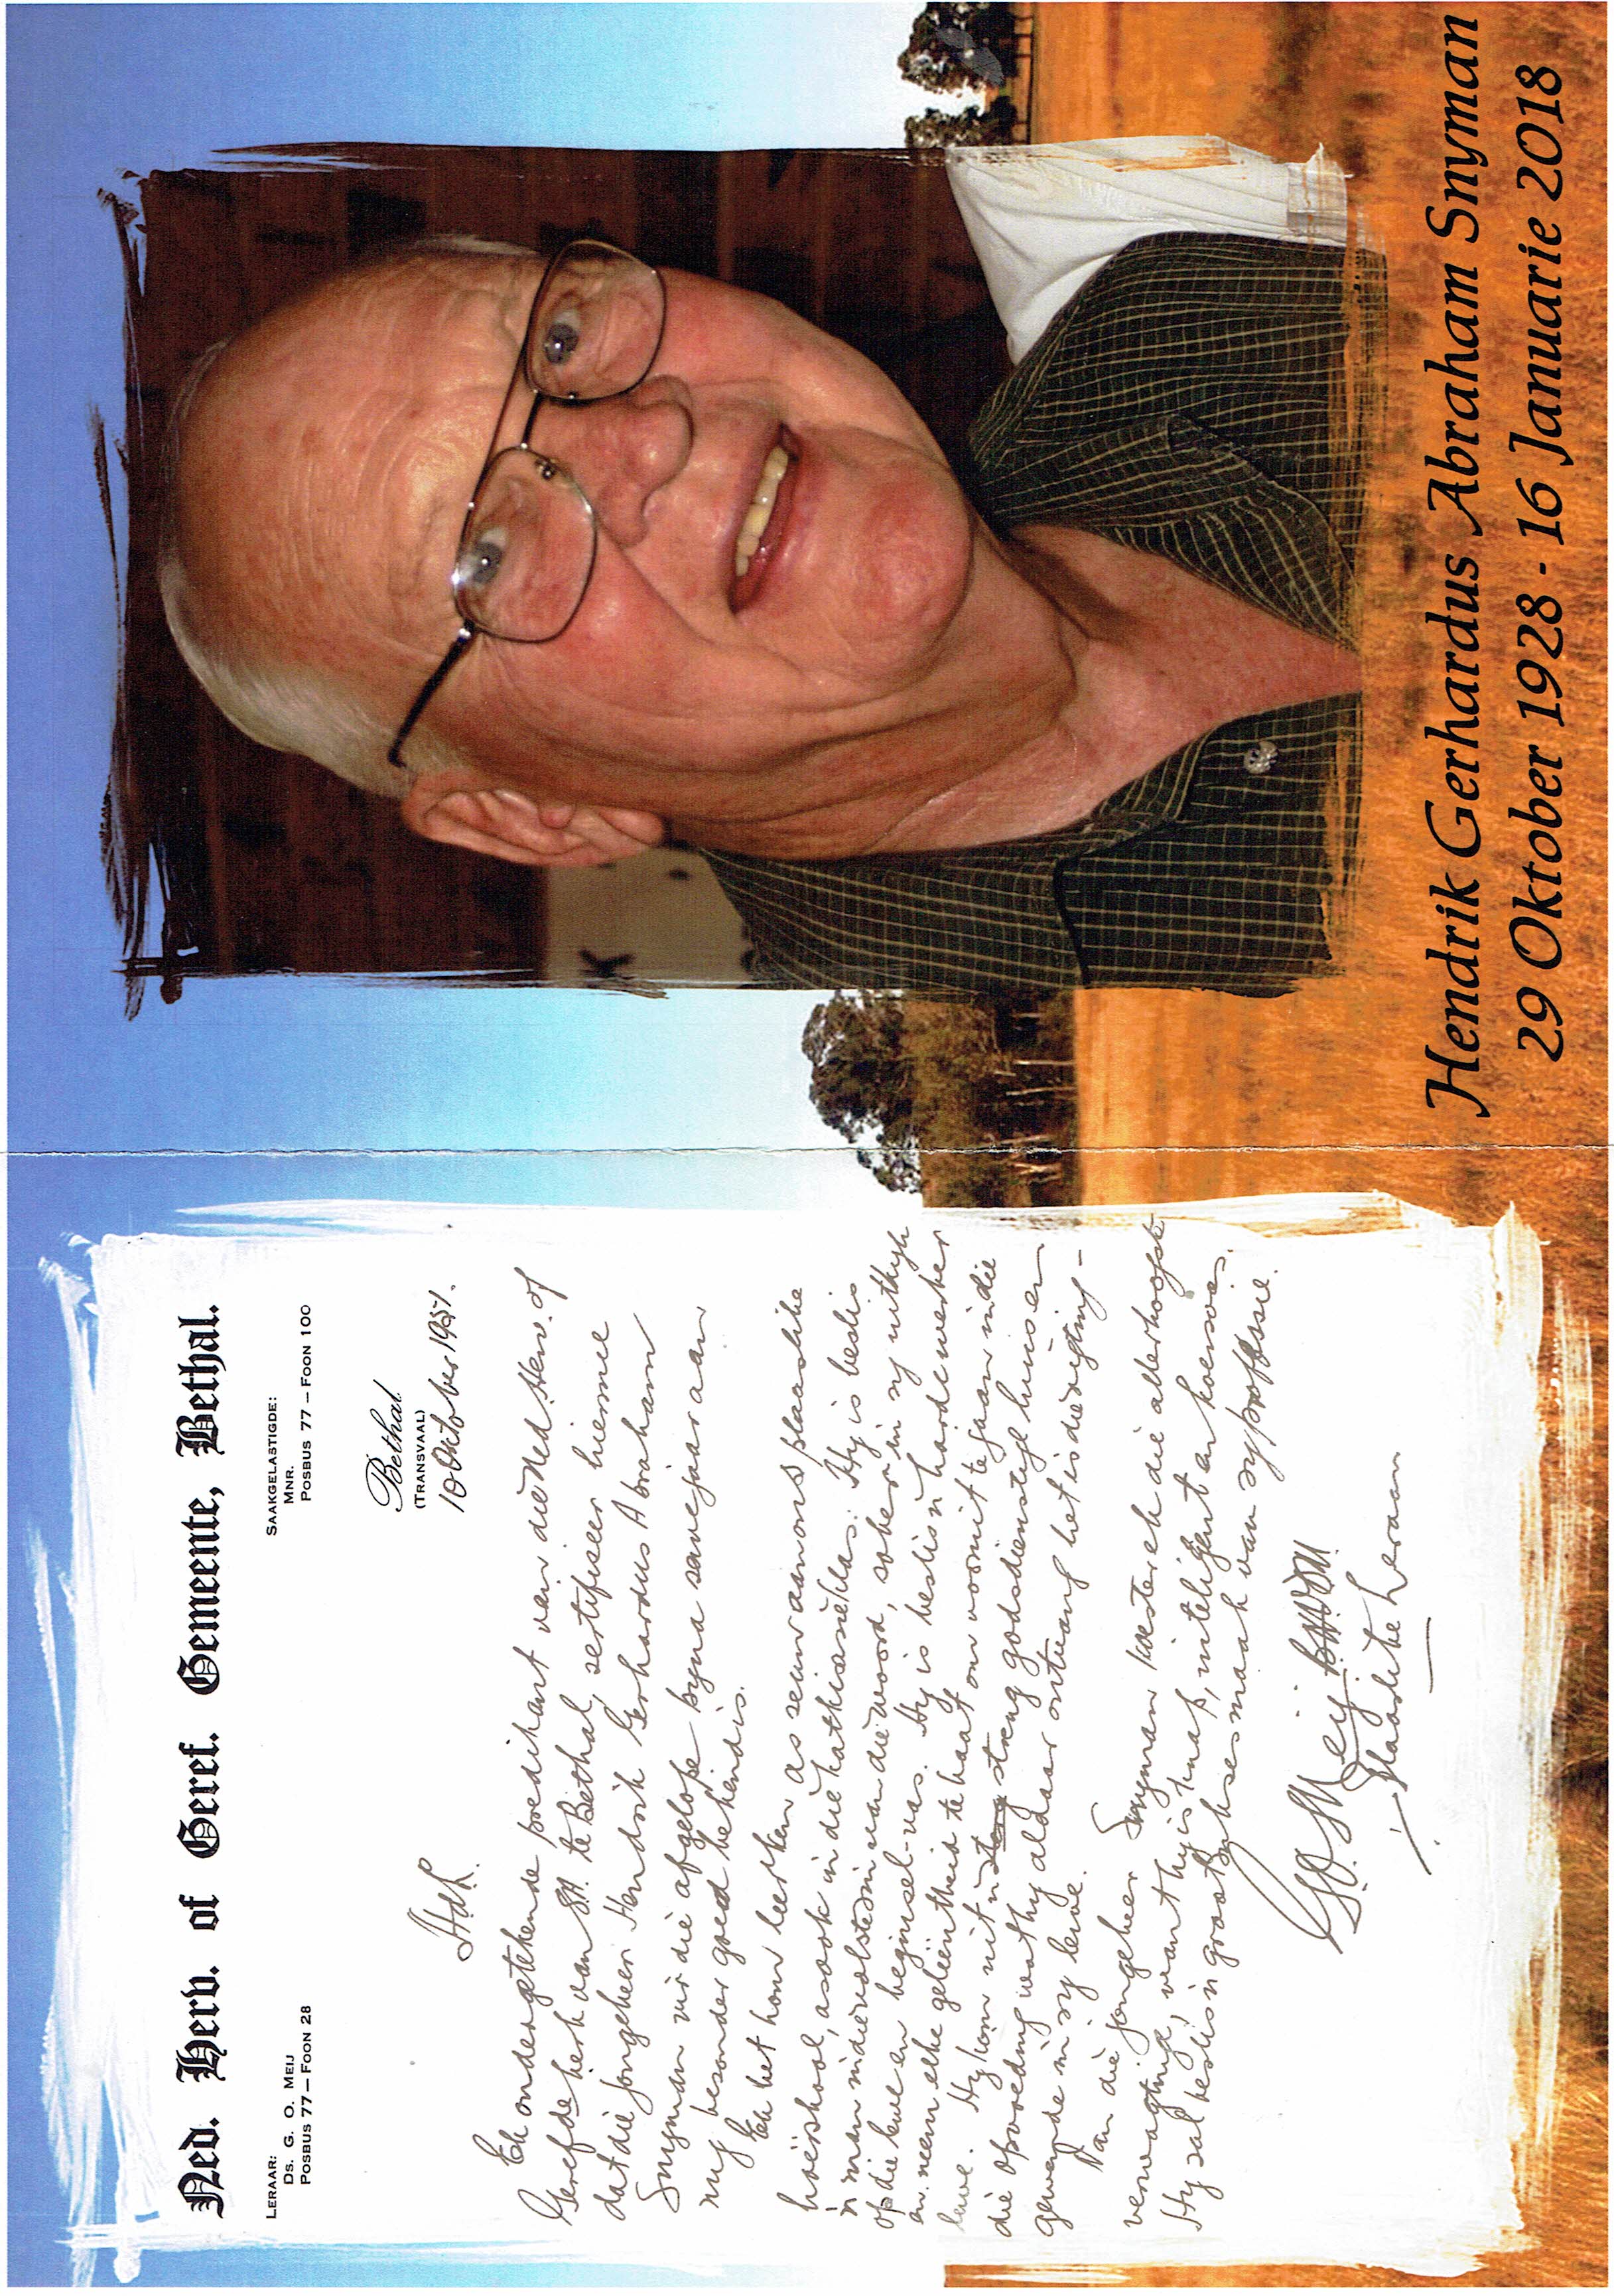 Ned. Herv. of Geref. Gemeente, Bethal.
LERAAR:
DS. G. O. MEIJ
POSBUS 77 — FOON 28
SAAKGELASTIGDE:
MNR.
POSBUS 77 — FOON 100
Bethal
(TRANSVAAL)
10 Oktober 1951.
Ek ondergetekende predikant van die Ned. Herv. of
Gerefde kerk van SA. te Bethal, sertifiseer hiermee
dat die jongheer Hendrik Gerhardus Abraham
Snyman vir die afgelope byna sewe jaar aan
my besonder goed bekend is.
Ek het hom leer ken as seun aan ons plaaslike
hoërskool, asook in die katkisasieklas. Hy is beslis
'n man in die volste sin van die woord, sober in sy uitkyk
op die lewe en beginsel-vas. Hy is beslis 'n hardewerker
en neem elke geleentheid te baat om vooruit te gaan in die
lewe. Hy kom uit 'n streng godsdienstige huis en
die opvoeding wat hy aldaar ontvang het is die rigting-
gewende in sy lewe.
Van die jongheer Snyman koester ek die allerhoogste
verwagtinge, want hy is knap, intelligent en
Hy sal beslis 'n groot sukses maak van sy professie.
Meij
Plaaslike Leraar
Hendrik Gerhardus Abraham Snyman
29 Oktober 1928 - 16 Januarie 2018
K